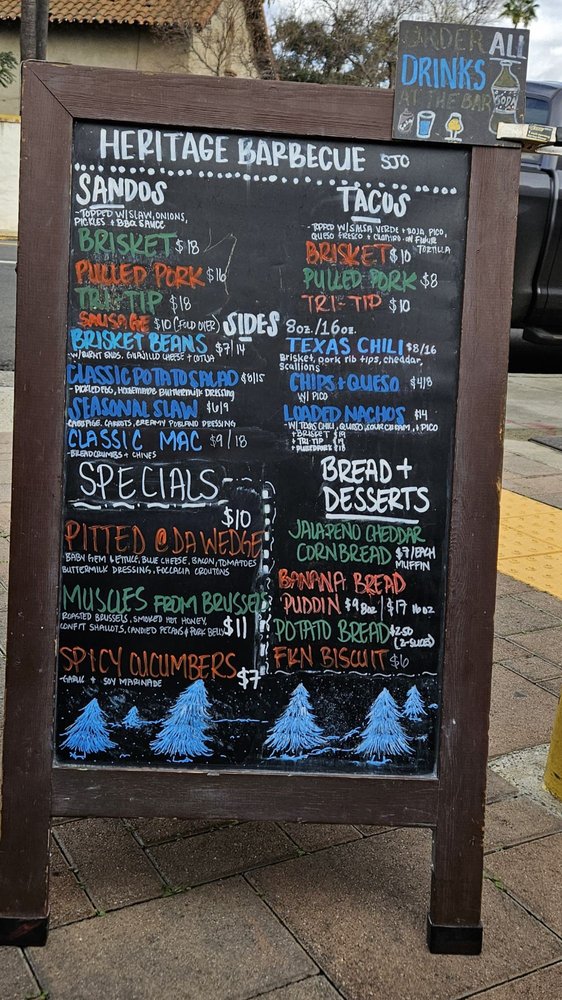 ORDER ALL
DRINKS
AT THE BAR
SODA
HERITAGE BARBECUE SJO
SANDOS
-TOPPED W/SLAW, ONIONS,
PICKLES + BBQ SAUCE
BRISKET $18
PULLED PORK $16
TRI-TIP $18
SAUSAGE $10 (FOLD OVER)
TACOS
-TOPPED W/SALSA VERDE + ROJA, PICO,
QUESO FRESCO + CILANTRO ON FLOUR
TORTILLA
BRISKET $10
PULLED PORK $8
TRI-TIP $10
SIDES 8oz./16oz.
BRISKET BEANS $7/14
W/BURNT ENDS, GUAJILLO CHEESE + COTIJA
CLASSIC POTATO SALAD $8/15
-PICKLED EGG, HOMEMADE BUTTERMILK DRESSING
SEASONAL SLAW $6/9
CABBAGE, CARROTS, CREAMY POBLANO DRESSING
CLASSIC MAC $9/18
-BREADCRUMBS + CHIVES
TEXAS CHILI $8/16
Brisket, pork rib tips, cheddar,
scallions
CHIPS + QUESO $4/8
W/ PICO
LOADED NACHOS $14
-W/TEXAS CHILI, QUESO, SOUR CREAM, + PICO
+ BRISKET $19
+ TRI-TIP $19
+ PULLED PORK $18
SPECIALS
$10
PITTED @ DA WEDGE
BABY GEM LETTUCE, BLUE CHEESE, BACON, TOMATOES
BUTTERMILK DRESSING, FOCCACIA CROUTONS
MUSCLES FROM BRUSSELS
ROASTED BRUSSELS, SMOKED HOT HONEY,
CONFIT SHALLOTS, CANDIED PECANS + PORK BELLY $11
SPICY CUCUMBERS $7
-GARLIC + SOY MARINADE
BREAD +
DESSERTS
JALAPENO CHEDDAR
CORNBREAD $7/EACH
MUFFIN
BANANA BREAD
PUDDIN $9 8oz / $17 16oz
POTATO BREAD $2.50
(2-SLICES)
FKN BISCUIT $6